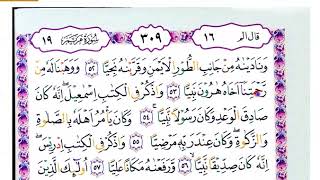 قال الم ١٦ ٣٠٩ سورة مريم ١٩
وَنَٰدَيْنَٰهُ مِن جَانِبِ ٱلطُّورِ ٱلْأَيْمَنِ وَقَرَّبْنَٰهُ نَجِيًّا ٥٢ وَوَهَبْنَا لَهُۥ مِن
رَّحْمَتِنَآ أَخَاهُ هَٰرُونَ نَبِيًّا ٥٣ وَٱذْكُرْ فِى ٱلْكِتَٰبِ إِسْمَٰعِيلَ ۚ إِنَّهُۥ كَانَ
صَادِقَ ٱلْوَعْدِ وَكَانَ رَسُولًا نَّبِيًّا ٥٤ وَكَانَ يَأْمُرُ أَهْلَهُۥ بِٱلصَّلَوٰةِ
وَٱلزَّكَوٰةِ وَكَانَ عِندَ رَبِّهِۦ مَرْضِيًّا ٥٥ وَٱذْكُرْ فِى ٱلْكِتَٰبِ إِدْرِيسَ ۚ
إِنَّهُۥ كَانَ صِدِّيقًا نَّبِيًّا ٥٦ وَرَفَعْنَٰهُ مَكَانًا عَلِيًّا ٥٧ أُو۟لَٰٓئِكَ ٱلَّذِينَ